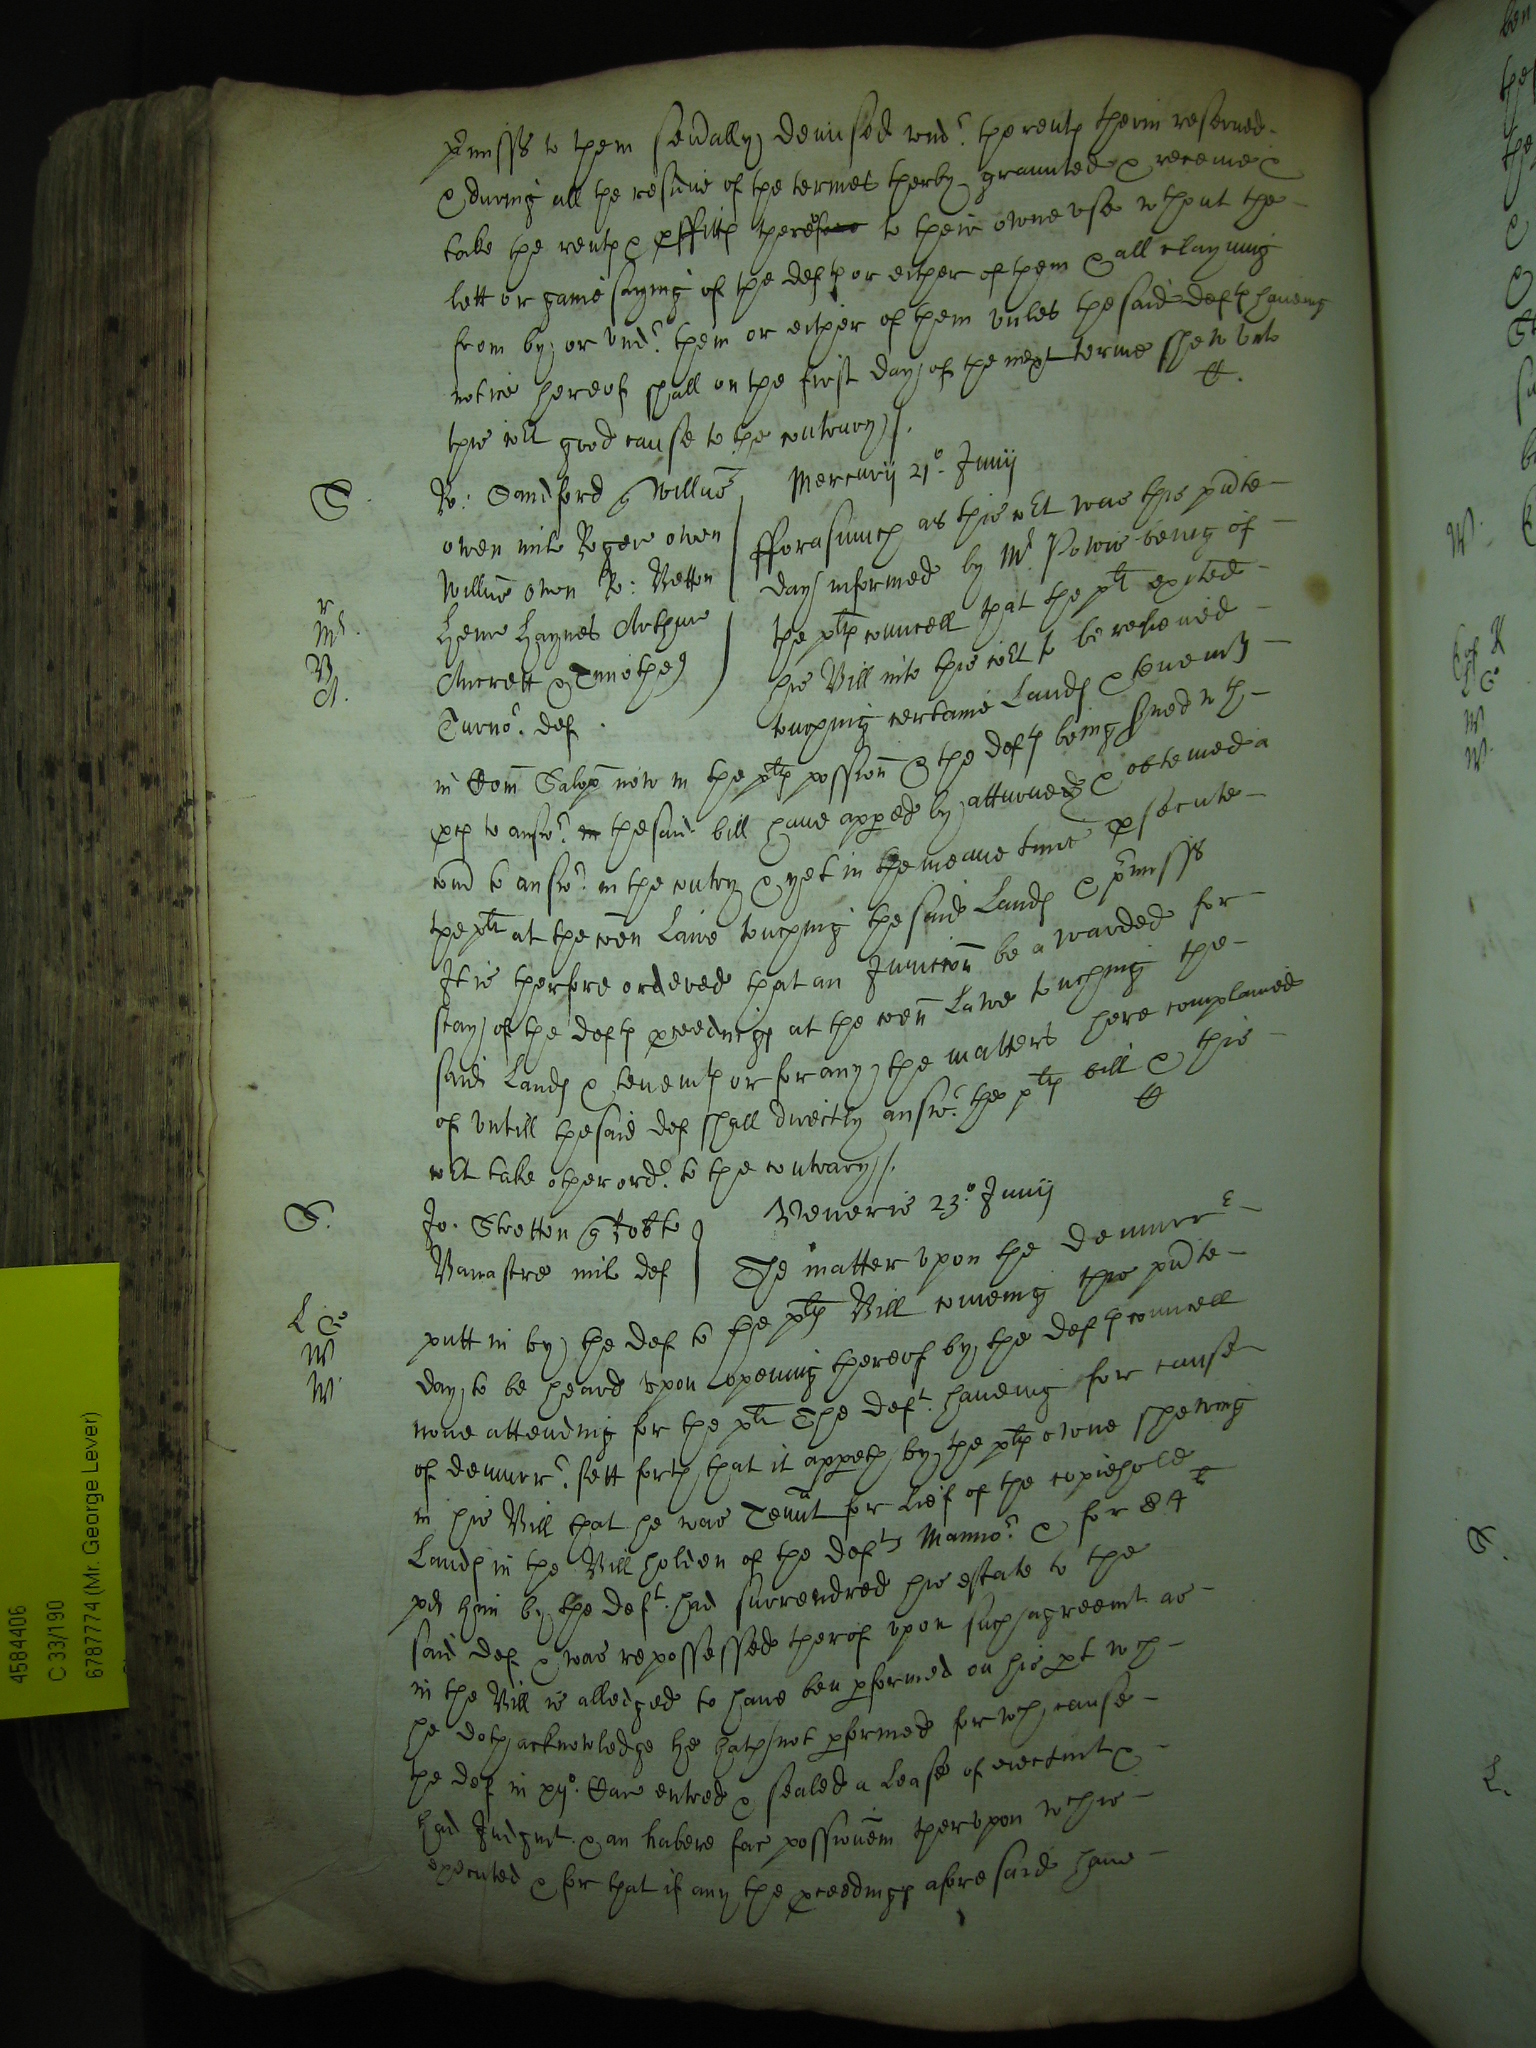 p'miss to them sev'ally demised und' the rents therin reserved
& during all the residue of the termes therby graunted & receive &
take the rents & proffitts therof to their owne use w'thout the
lett or gainesaying of the defts or either of them & all clayming
from by or und' them or either of them unles the said defts haveing
notice hereof shall on the first day of the next terme shew unto
this co't good cause to the contrary /.
S
Mercurij 21o Junij
R: Sandford q Willus
owen mil Roger owen
Willus Owen R: Betton
Henr Haynes Arthur
Averett & Timothey
Turno' def
r
Mr.
B
A.
fforasmuch as this co't was this p'nte
day informed by Mr Powis being of
the plts councell that the plt exited
his Bill into this co't to be releived
touching certaine Lands & tenemts
in Com Salop now in the plts possion & the defts being s'ved w'th
pces to answ' the said bill have appeed by atturney & obteined a
comd to answ' in the contry & yet in the meane time psecute
the plt at the coen Lawe touching the said Lands & p'miss
It is therfore ordered that an Junccon be awarded for
stay of the defts pceedings at the coen Lawe touching the
said Lands & tenemts or for any the matters here complained
of untill the said def shall directly answ' the plts bill & this
co't take other ord' to the contrary /.
S.
Veneris 23o Junij
Jo. Stretton q Robto
Banastre mil def
L Ge
W
W
The matter upon the demurr'
putt in by the def to the plts Bill comeing this p'nte
day to be heard upon opening thereof by the defts councell
none attending for the plt The deft. haveing for cause
of demurr' sett forth that it appeth by the plts owne shewing
in his Bill that he was Tenat for Lief of the copiehold
Lands in the Bill holden of the defts Manno' & for 84 l
pd him by the deft. had surrendred his estate to the
said def & was repossessed therof upon such agreemt as
in the Bill is alledged to have ben pformed on his pt w'ch
he doth acknowledge he hath not pformed for w'ch cause
the def in xijo Car entred & sealed a Lease of eiectmt &
had Judgmt & an habere fac possionem therupon w'ch is
executed & for that if any the pceedings aforesaid have
4584406
C 33/190
6787774 (Mr. George Lever)